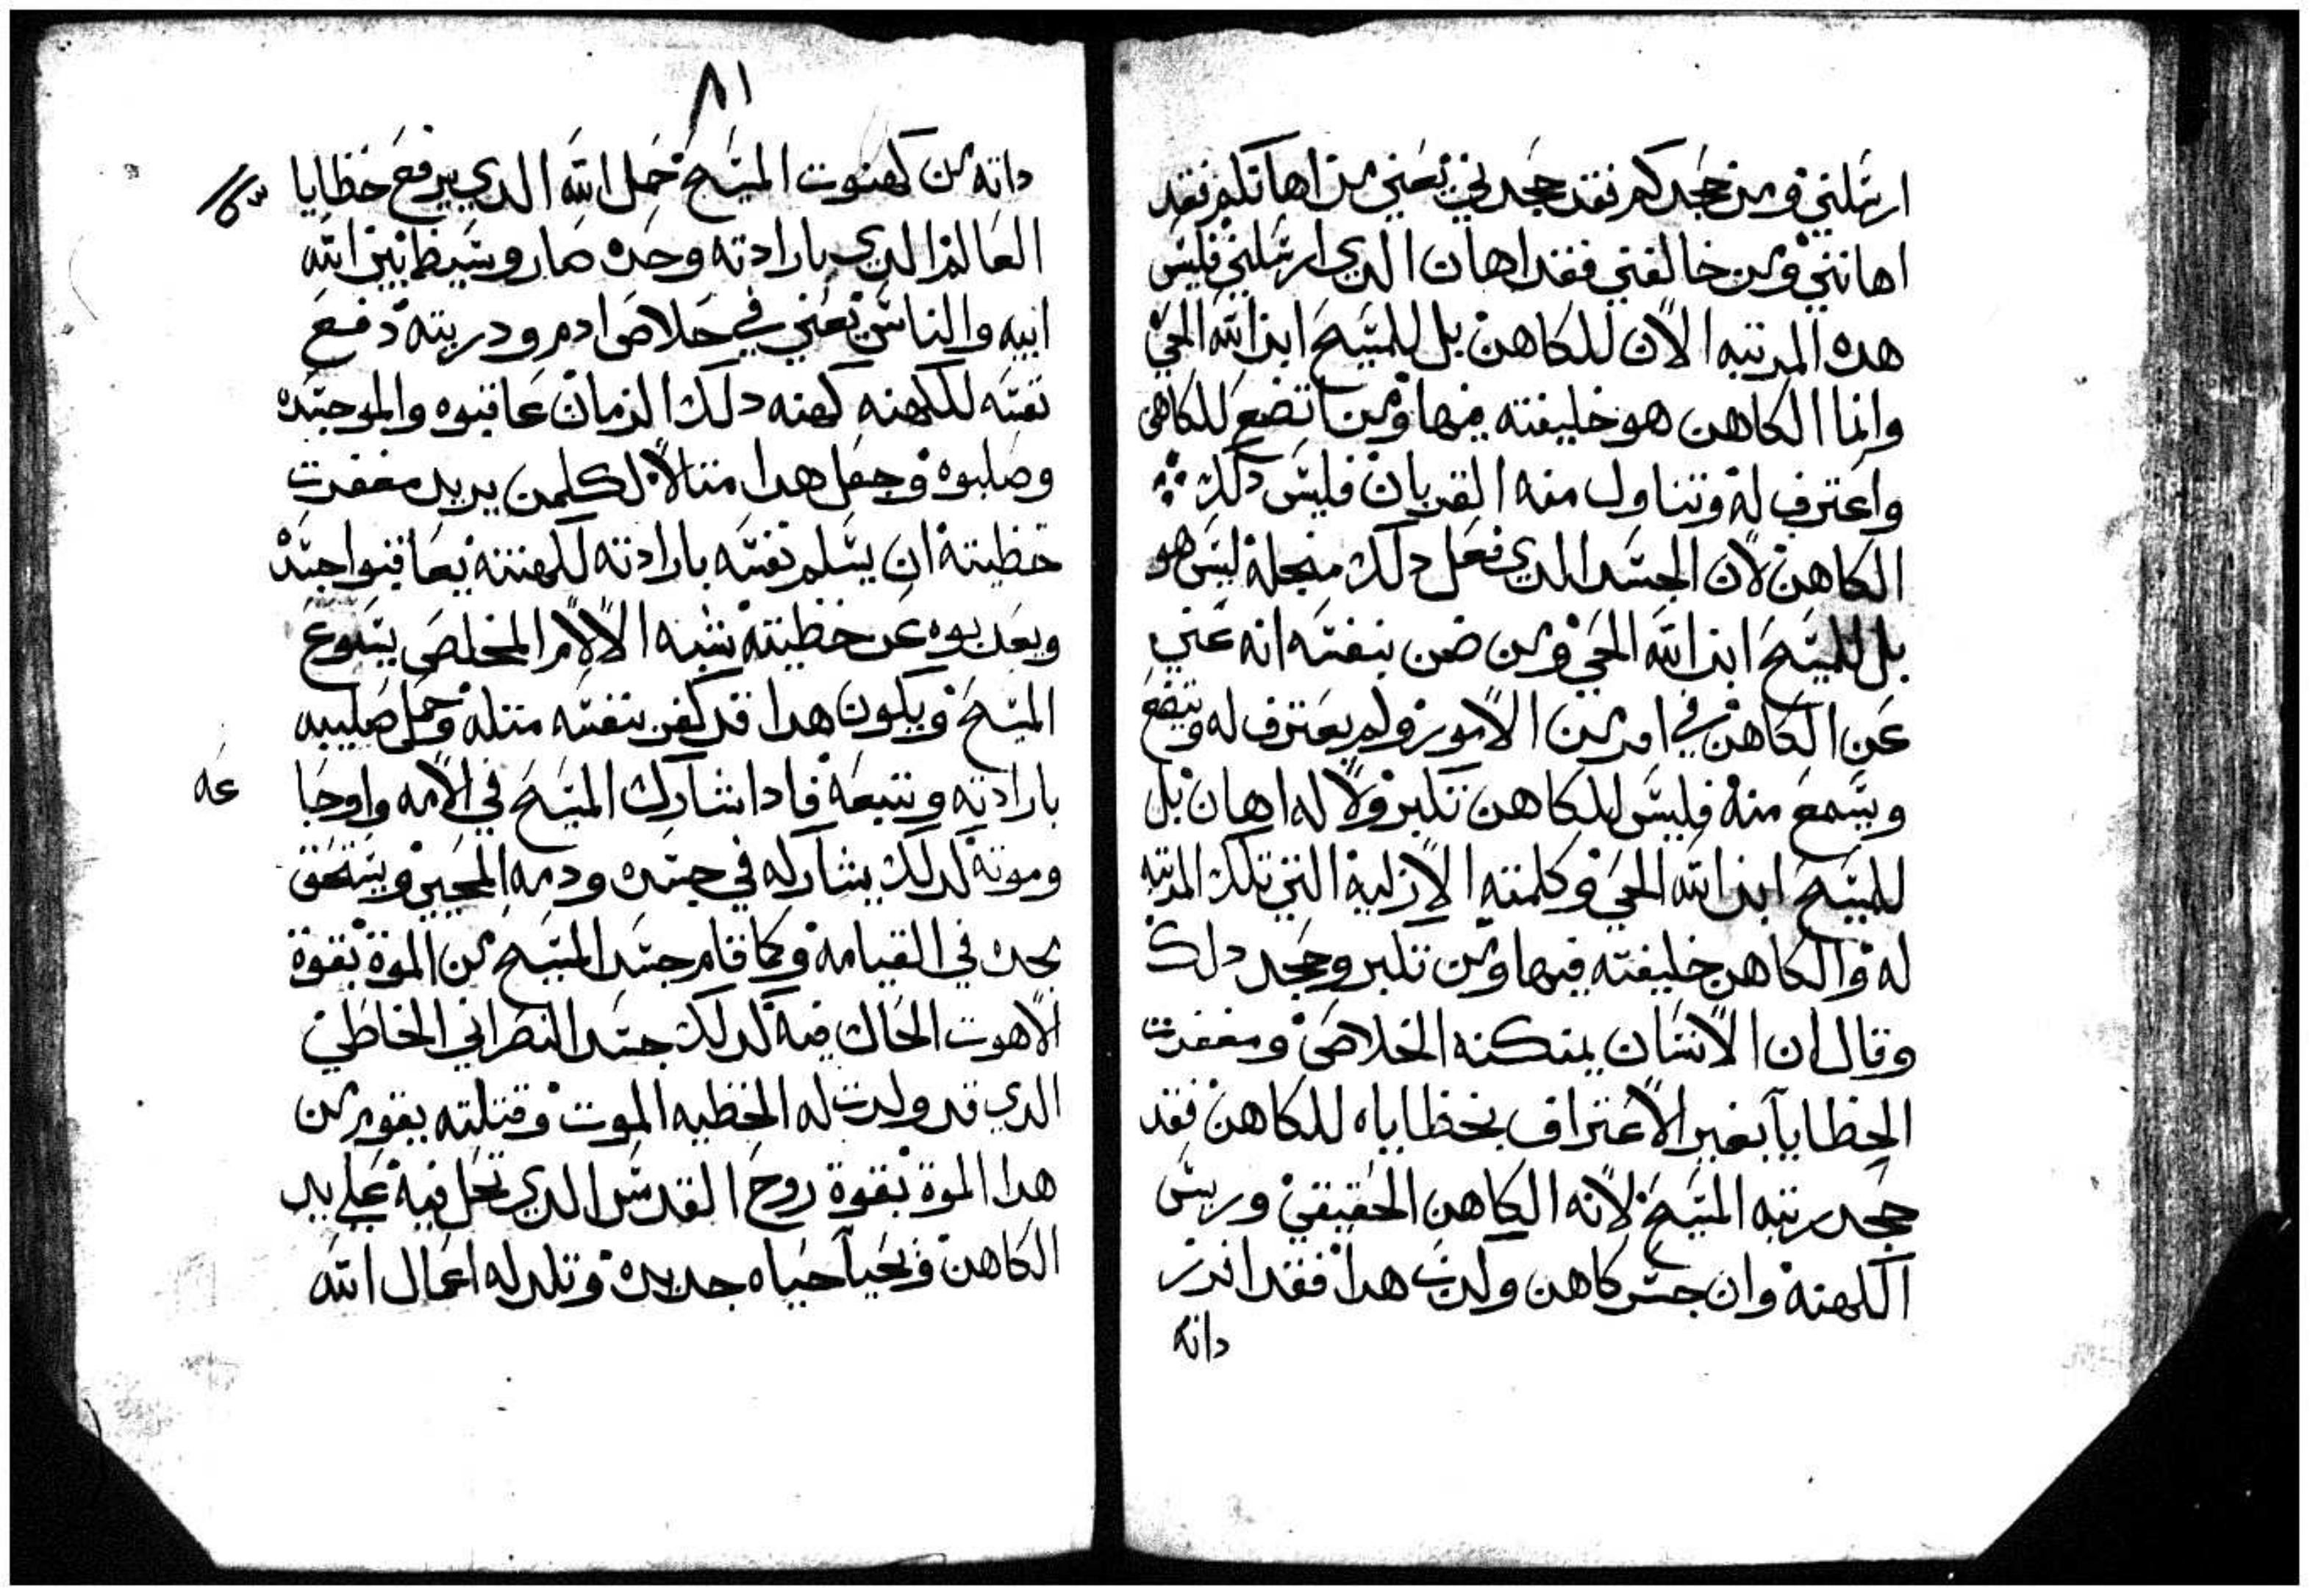 ارسلني ومن جحدكم فقد جحدني يعني من اهانكم فقد
اهانني ومن خالفني فقد اهان الدي ارسلني فليس
هده المرتبه الان للكاهن بل للمسيح ابن الله الحي
وانما الكاهن هو خليفته فيها ومن اتضع للكاهن
واعترف له وتناول منه القربان فليس دلك
الكاهن لان الجسد الدي فعل دلك من جله ليس هو
بل للمسيح ابن الله الحي ومن ضن بنفسه انه غني
عن الكاهن في امر من الامور ولم يعترف له ويتضع
ويسمع منه فليس للكاهن تكبر ولا له اهان بل
للمسيح ابن الله الحي وكلمته الازلية التي تلك المرتبه
له والكاهن خليفته فيها ومن تكبر وجحد دلك
وقال ان الانسان يمتكنه الخلاص ومغفرت
الخطايا بغير الاعتراف بخطاياه للكاهن فقد
جحد رتبه المسيح لانه الكاهن الحقيقي وريس
الكهنة وان جسر كاهن ولدت هدا فقد افرز
داته
٨١
داته من كهنوت المسيح حمل الله الدي يرفع خطايا
العالم الدي بارادته وحده صار وسيط بين الله
ابيه والناس يعني في خلاص ادم ودريته دفع
نفسه للكهنه كهنه دلك الزمان عاقبوه والموجسده
وصلبوه وجعل هدا متالا لكلمن يريد مغفرت
خطيته ان يسلم نفسه بارادته للكهنته يعاقبوا جسده
ويعدبوه عن خطيته بشبه الالام المخلص يسوع
المسيح ويكون هدا قد كفر بنفسه متله وحمل صليبه
بارادته وتبعه فادا شارك المسيح في الامه واوجا عه
وموته لدلك يشاركه في جسده ودمه المحيي ويستحق
بجده في القيامة وكما قام جسد المسيح من الموة بقوة
الاهوت الحال فيه كدلك جسد النصراني الخاطي
الدي قد ولدت له الخطيه الموت وقتلته يقوم من
هدا الموة بقوة روح القدس الدي تحل فية علي يد
الكاهن ويحيا حياه جديدة وتلد له اعمال الله